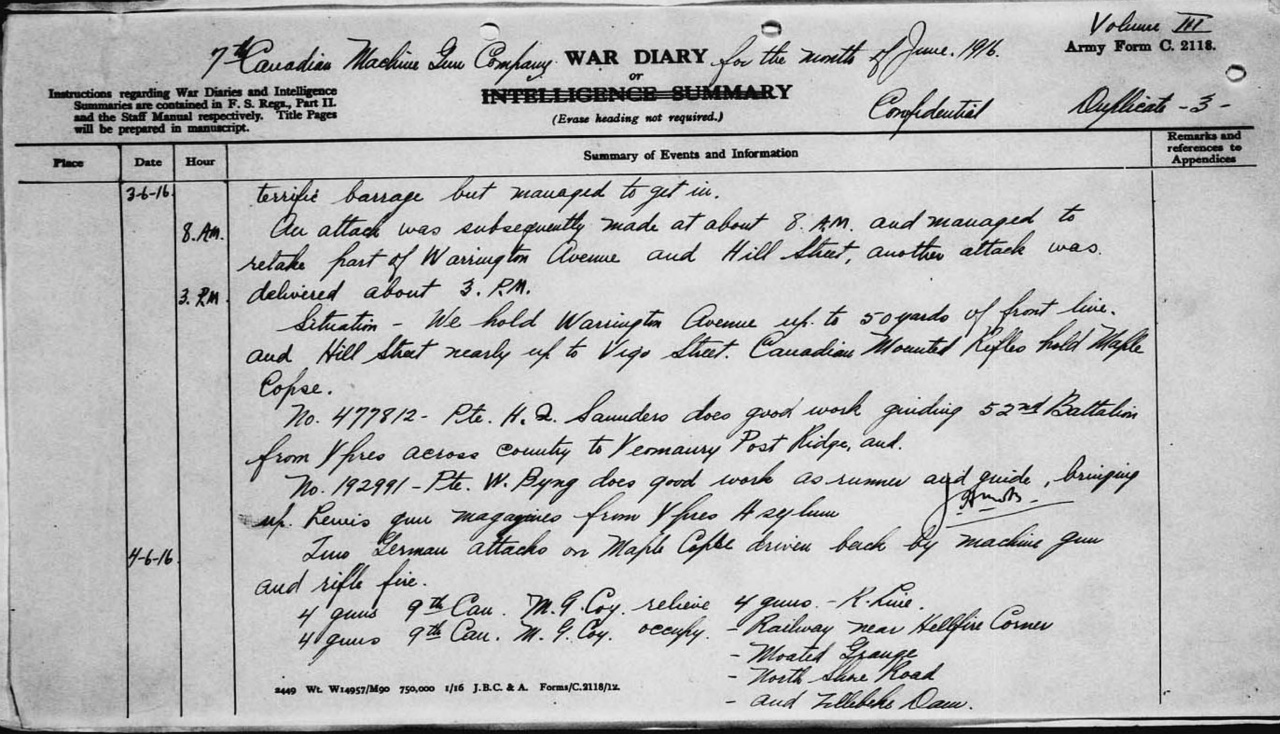 Volume III
7th Canadian Machine Gun Company. WAR DIARY for the month of June. 1916.
Army Form C. 2118.
or
INTELLIGENCE SUMMARY
(Erase heading not required.)
Instructions regarding War Diaries and Intelligence
Summaries are contained in F. S. Regs., Part II.
and the Staff Manual respectively. Title Pages
will be prepared in manuscript.
Confidential
Duplicate - 3 -
Place Date Hour Summary of Events and Information Remarks and
references to
Appendices
3-6-16. terrific barrage but managed to get in.
8. A.M. An attack was subsequently made at about 8. A.M. and managed to
retake part of Warrington Avenue and Hill Street, another attack was
3. P.M. delivered about 3. P.M.
Situation - We hold Warrington Avenue up to 50 yards of front line.
and Hill Street nearly up to Vigo Street. Canadian Mounted Rifles hold Maple
Copse.
No. 477812 - Pte. H. Saunders does good work guiding 52nd Battalion
from Ypres across country to Yeomanry Post Ridge, and.
No. 192991 - Pte. W. Byng does good work as runner and guide, bringing
up. Lewis gun magazines from Ypres Asylum
4-6-16. Two German attacks on Maple Copse driven back by machine gun
and rifle fire.
4 guns 9th Can. M.G. Coy. relieve 4 guns. - R. Line.
4 guns 9th Can. M.G. Coy. occupy. - Railway near Hellfire Corner
- Moated Grange
- North Shore Road
- and Zillebeke Dam.
2449 Wt. W14957/M90 750,000 1/16 J.B.C. & A. Forms/C.2118/12.